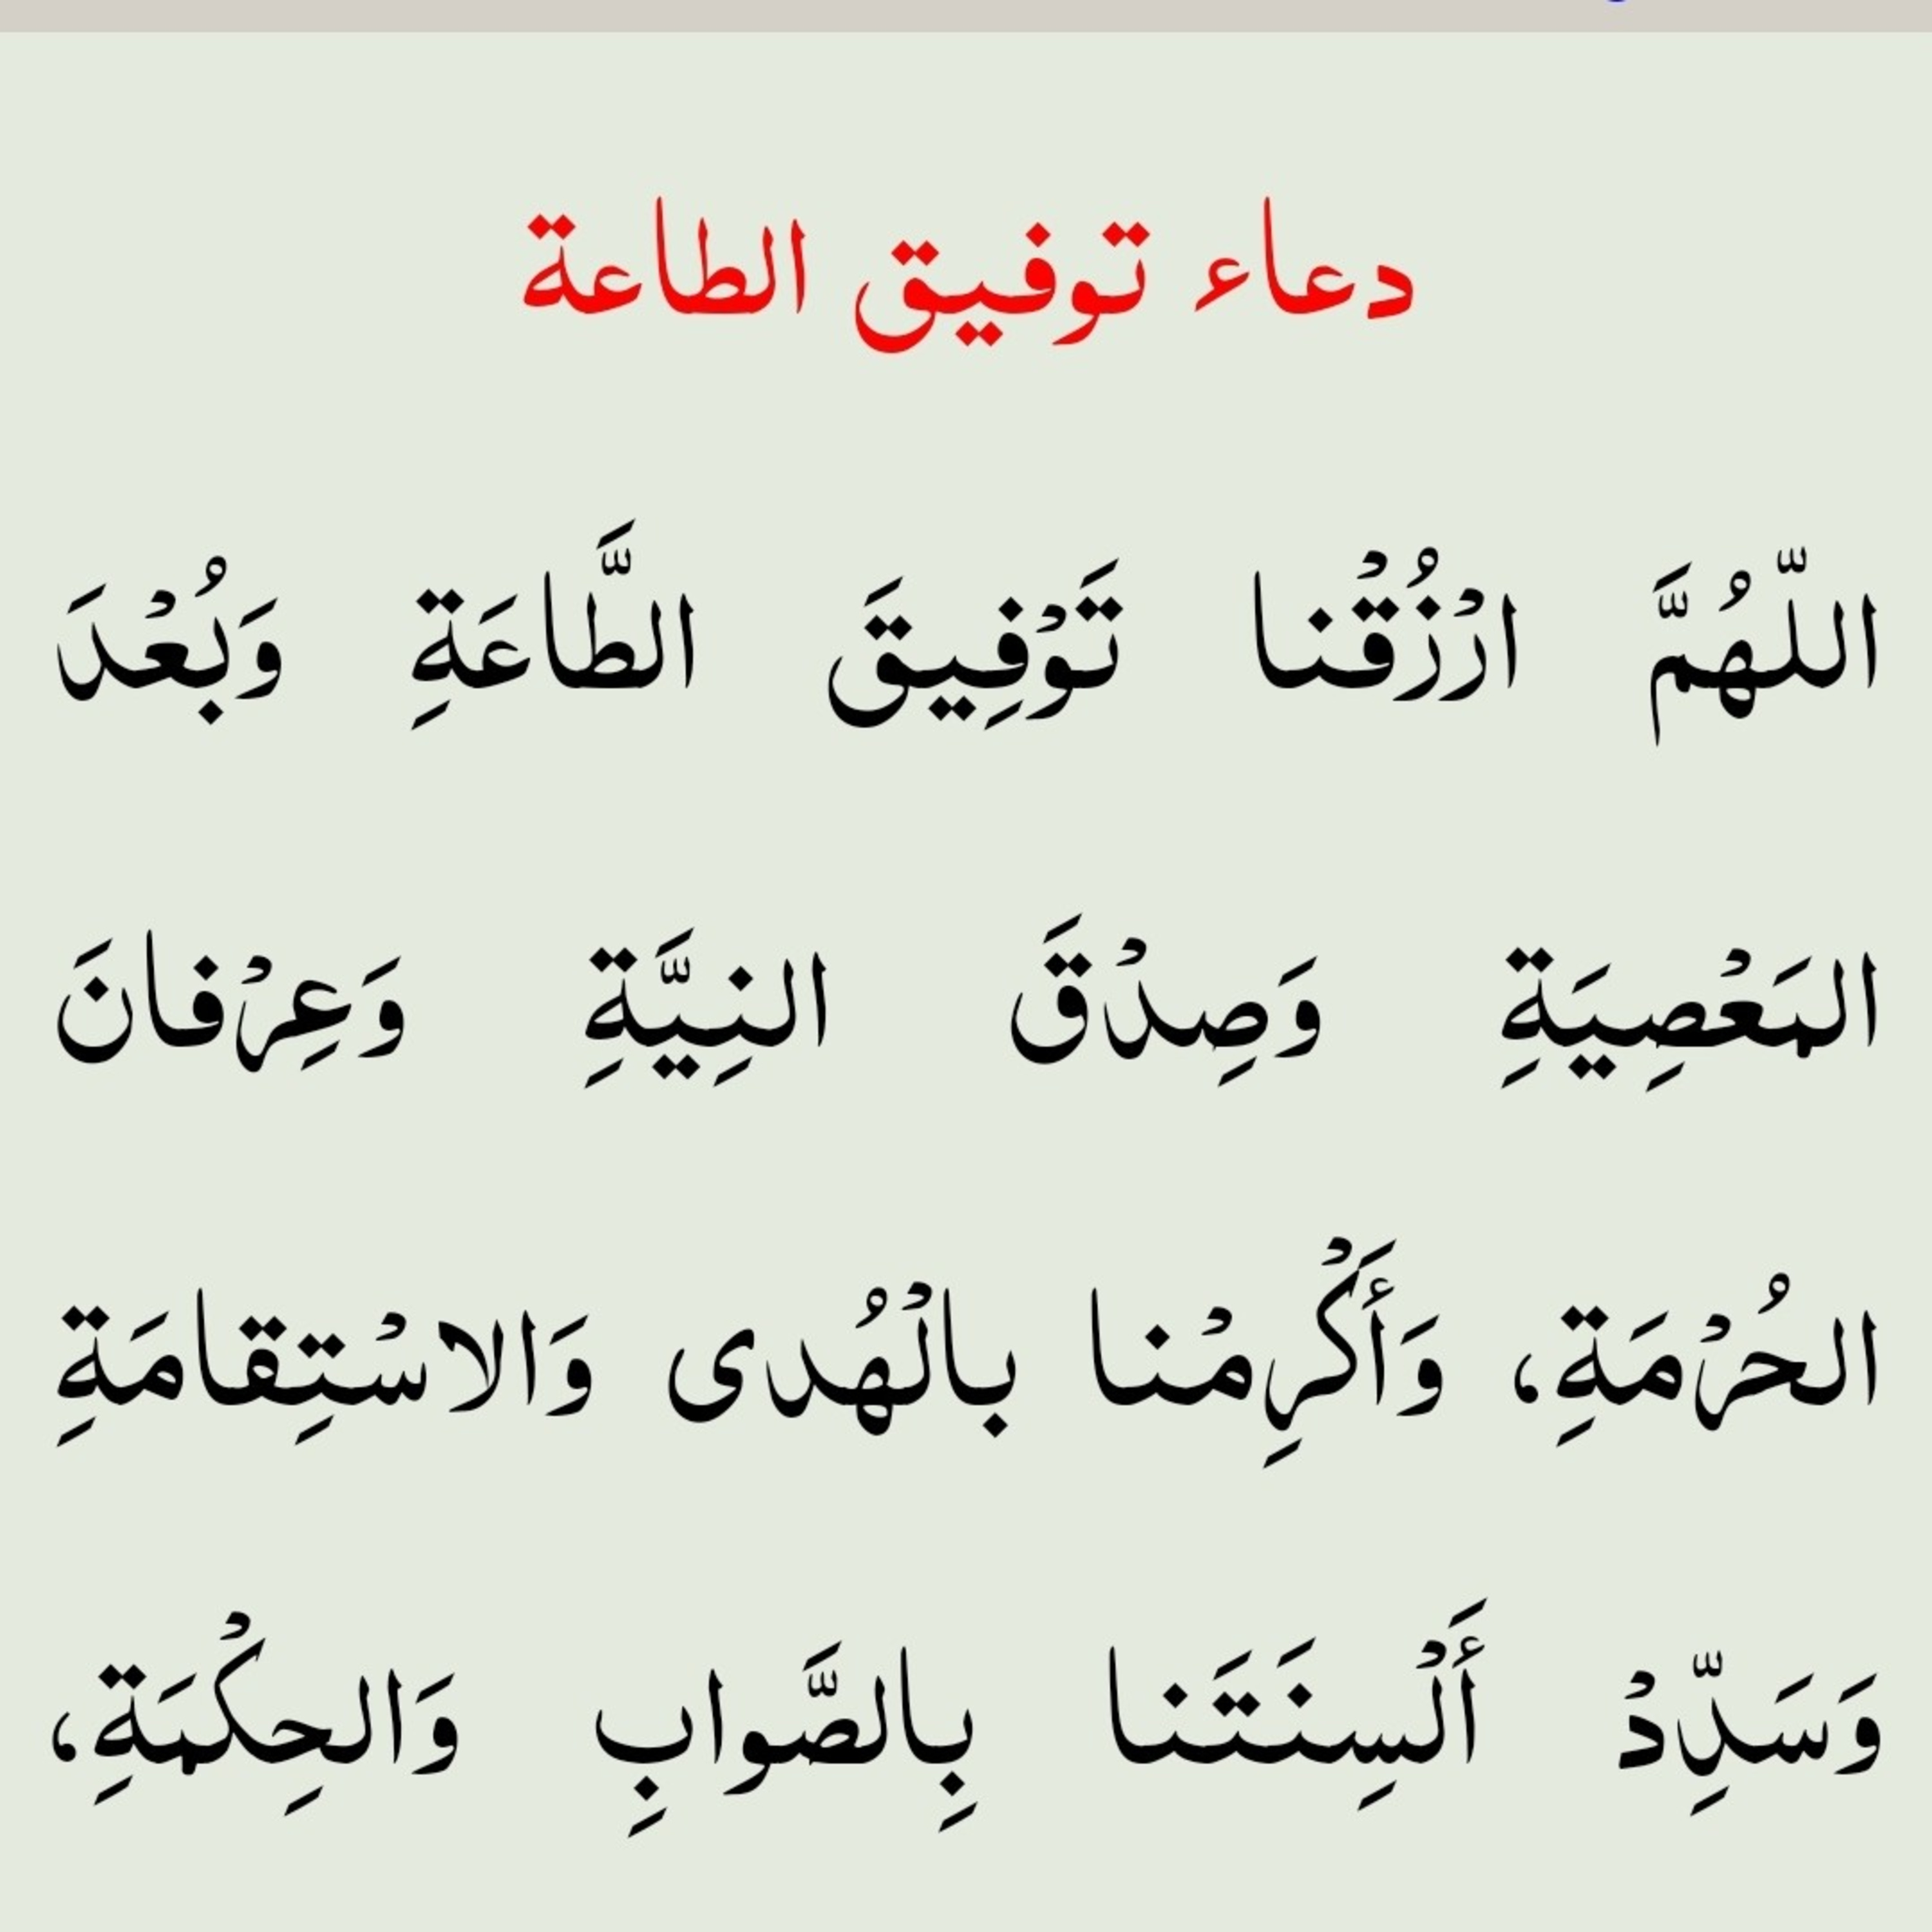 دعاء توفيق الطاعة
اللّهُمَّ ارْزُقْنا تَوْفِيقَ الطَّاعَةِ وَبُعْدَ
المَعْصِيَةِ وَصِدْقَ النِيَّةِ وَعِرْفانَ
الحُرْمَةِ، وَأَكْرِمْنا بالْهُدى وَالاسْتِقامَةِ
وَسَدِّدْ أَلْسِنَتَنا بِالصَّوابِ وَالحِكْمَةِ،